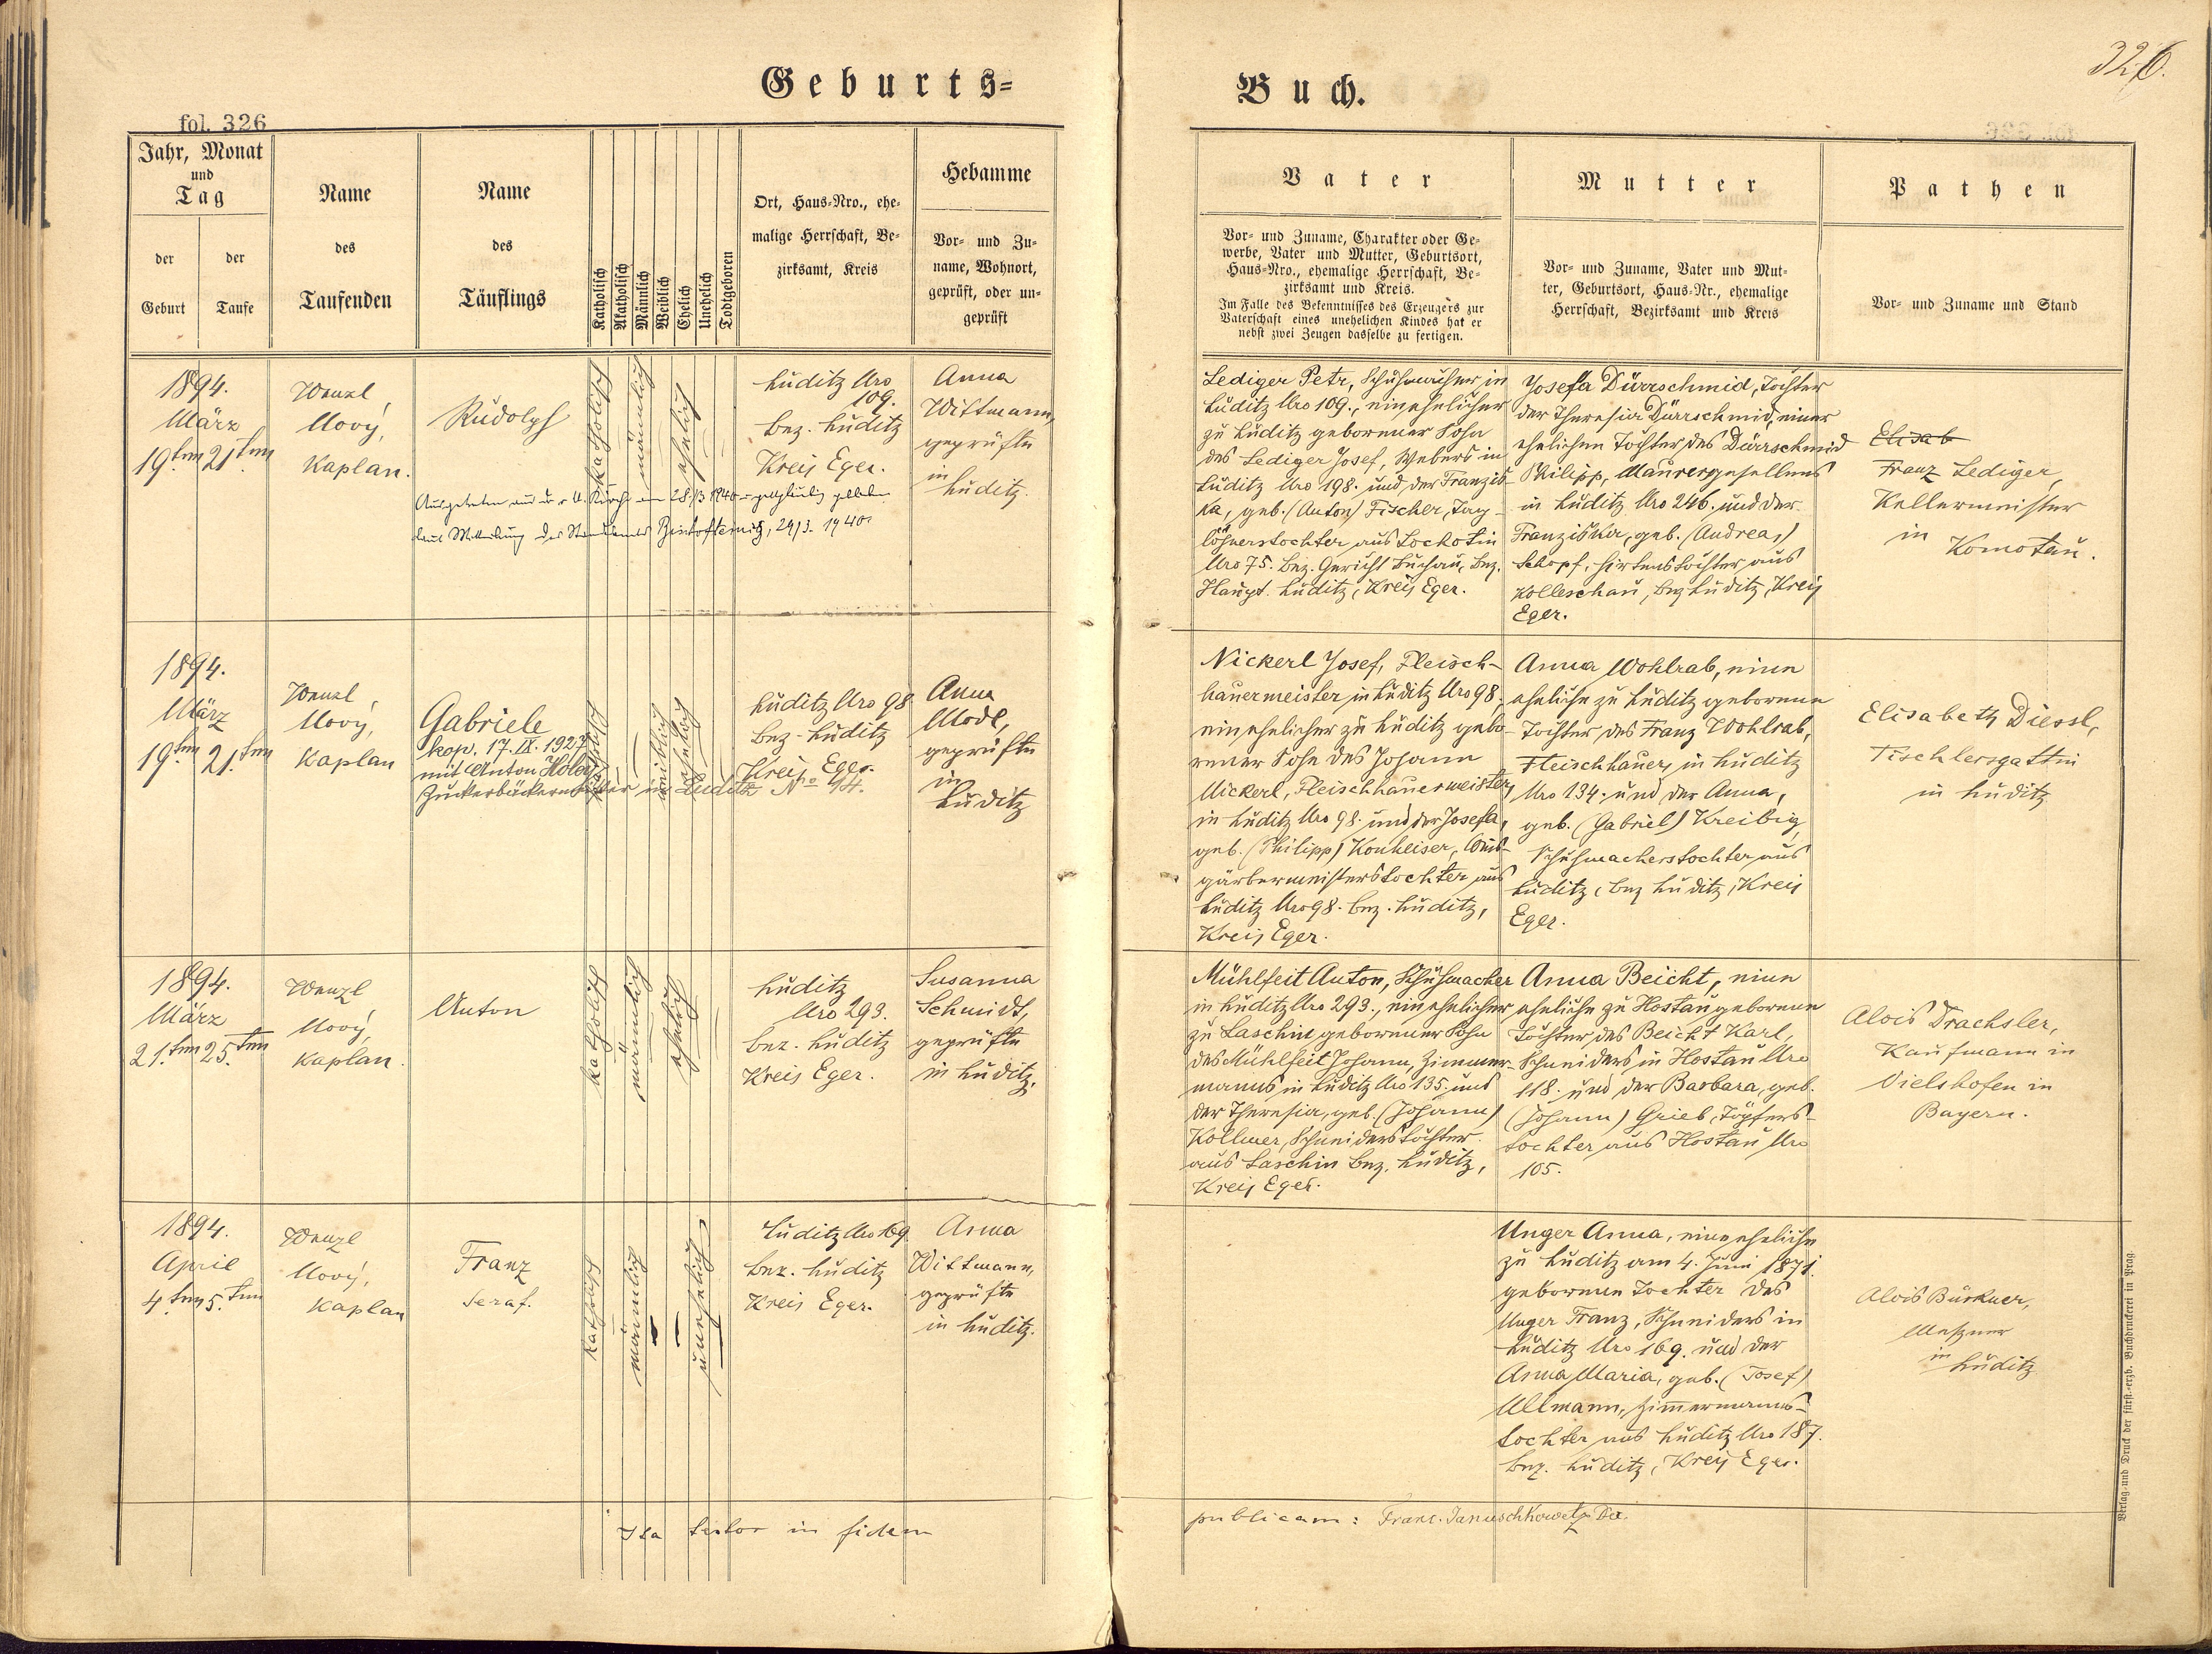 326.
Geburts-
Buch.
fol. 326
Jahr, Monat
und
Tag
der
Geburt
der
Taufe
Name
des
Taufenden
Name
des
Täuflings
Katholisch
Akatholisch
Männlich
Weiblich
Ehelich
Unehelich
Todtgeboren
Ort, Haus-Nro., ehe-
malige Herrschaft, Be-
zirksamt, Kreis
Hebamme
Vor- und Zu-
name, Wohnort,
geprüft, oder un-
geprüft
Vater
Vor- und Zuname, Charakter oder Ge-
werbe, Vater und Mutter, Geburtsort,
Haus-Nro., ehemalige Herrschaft, Be-
zirksamt und Kreis.
Im Falle des Bekenntnisses des Erzeugers zur
Vaterschaft eines unehelichen Kindes hat er
nebst zwei Zeugen dasselbe zu fertigen.
Mutter
Vor- und Zuname, Vater und Mut-
ter, Geburtsort, Haus-Nr., ehemalige
Herrschaft, Bezirksamt und Kreis
Pathen
Vor- und Zuname und Stand
1894.
März
19.ten 21.ten
Wenzl
Nový,
Kaplan.
Rudolph
katholisch
männlich
ehelich
Luditz Nro
109.
Bez. Luditz
Kreis Eger.
Anna
Wittmann,
geprüfte
in
Luditz.
Ausgetreten aus der r. k. Kirche am 28./3 1940
laut Mitteilung des Standesamtes Bischofteinitz, 29/3. 1940.
Lediger Petr, Schuhmacher in
Luditz Nro 109., ein ehelicher
zu Luditz geborener Sohn
des Lediger Josef, Webers in
Luditz Nro 198. und der Franzis-
ka, geb. (Anton) Fischer, Tag-
löhnerstochter aus Lochotin
Nro 75. Bez. Gericht Buchau, Bez.
Haupt. Luditz, Kreis Eger.
Josefa Dürrschmid, Tochter
der Theresia Dürrschmid, einer
ehelichen Tochter des Dürrschmid
Philipp, Maurergesellens
in Luditz Nro 246. und der
Franziska, geb. (Andreas)
Schopf, Hirtenstochter aus
Kolleschau, Bez Luditz, Kreis
Eger.
Elisab
Franz Lediger,
Kellermeister
in
Komotau.
1894.
März
19.ten 21.ten
Wenzl
Nový,
Kaplan
Gabriele
kop. 17. IX. 1927
mit Anton
Zuckerbäcker in Luditz No 94.
katholisch
weiblich
ehelich
Luditz Nro 98
Bez. Luditz
Kreis Eger.
Anna
Modl,
geprüfte
in
Luditz
Nickerl Josef, Fleisch-
hauermeister in Luditz Nro 98.
ein ehelicher zu Luditz gebo-
rener Sohn des Johann
Nickerl, Fleischhauermeisters,
in Luditz Nro 98. und der Josefa,
geb. (Philipp) Konheiser, Weis-
gärbermeisterstochter aus
Luditz Nro 98. Bez. Luditz,
Kreis Eger.
Anna Wohlrab, eine
eheliche zu Luditz geborene
Tochter des Franz Wohlrab,
Fleischhauers, in Luditz
Nro 134. und der Anna,
geb. (Gabriel) Kreibig,
Schuhmacherstochter aus
Luditz, Bez Luditz, Kreis
Eger.
Elisabeth Diessl,
Tischlersgattin
in Luditz
1894.
März
21.ten 25.ten
Wenzl
Nový,
Kaplan.
Anton
katholisch
männlich
ehelich
Luditz
Nro 293.
Bez. Luditz
Kreis Eger.
Susanna
Schmidt,
geprüfte
in Luditz.
Mühlfeit Anton, Schuhmacher
in Luditz Nro 293., ein ehelicher
zu Laschin geborener Sohn
des Mühlfeit Johann, Zimmer-
manns in Luditz Nro 135. und
der Theresia, geb. (Johann)
Kollmer, Schneiderstochter
aus Laschin Bez. Luditz,
Kreis Eger.
Anna Beicht, eine
eheliche zu Hostau geborene
Tochter des Beicht Karl,
Schneiders in Hostau Nro
118. und der Barbara, geb.
(Johann) Grieb, Töpfers-
tochter aus Hostau Nro
105.
Alois Drachsler,
Kaufmann in
Vielshofen in
Bayern.
1894.
April
4.ten 5.ten
Wenzl
Nový,
Kaplan
Franz
Seraf.
katholisch
männlich
unehelich
Luditz Nro 169
Bez. Luditz
Kreis Eger.
Anna
Wittmann,
geprüfte
in Luditz.
Unger Anna, eine eheliche
zu Luditz am 4. Juni 1871.
geborene Tochter des
Unger Franz, Schneiders in
Luditz Nro 169. und der
Anna Maria, geb. (Josef)
Ullmann, Zimmermanns-
tochter aus Luditz Nro 187.
Bez. Luditz, Kreis Eger.
Alois Bürkner,
Meßner
in
Luditz
Ita testor in fidem
publicam: Franz. Januschkowetz De.
Verlag und Druck der fürst.-erzb. Buchdruckerei in Prag.